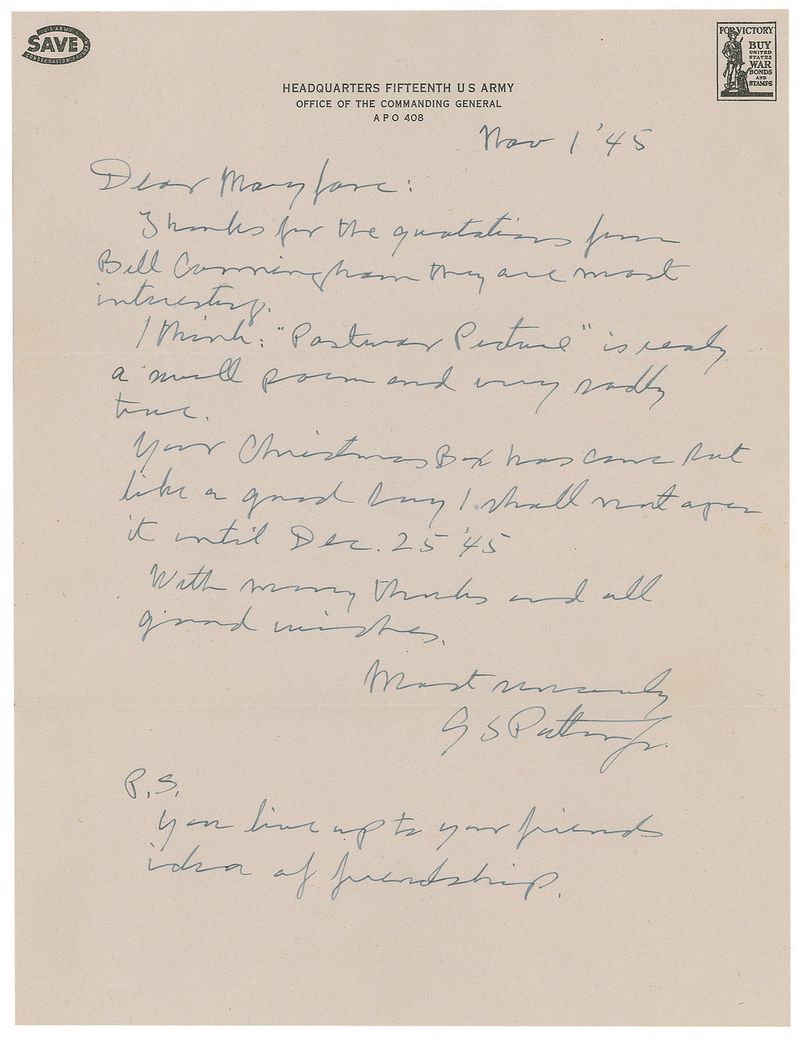 U.S. ARMY
SAVE
CONSERVATION
FOR VICTORY
BUY
UNITED
STATES
WAR
BONDS
AND
STAMPS
HEADQUARTERS FIFTEENTH U S ARMY
OFFICE OF THE COMMANDING GENERAL
A P O 408
Nov 1 '45
Dear Mary Jane:
Thanks for the quotations from
Bill Cunningham they are most
interesting.
I think: "Postwar Picture" is realy
a swell poem and very sadly
true.
Your Christmas Box has come but
like a good boy I shall not open
it until Dec. 25 '45
With many thanks and all
good wishes.
Most sincerely
G S Patton Jr.
P.S.
You live up to your friends
idea of friendship.